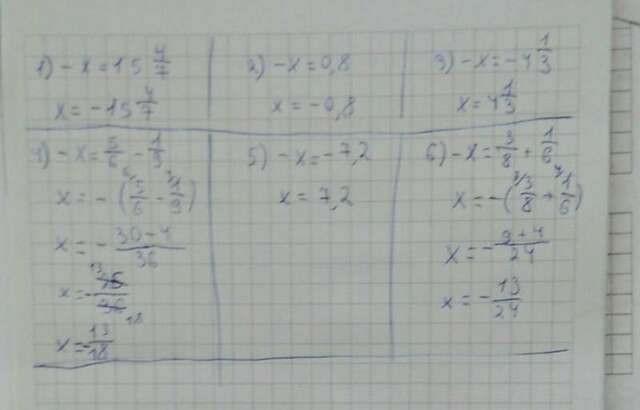 1) -x = 15 4/7
x = -15 4/7
2) -x = 0,8
x = -0,8
3) -x = -4 1/3
x = 4 1/3
4) -x = 5/6 - 1/9
x = - (5/6 - 1/9)
x = - 30-4/36
x = - 26/36
x = - 13/18
5) -x = -7,2
x = 7,2
6) -x = 3/8 + 1/6
x = -(3/8 + 1/6)
x = - 9+4/24
x = - 13/24